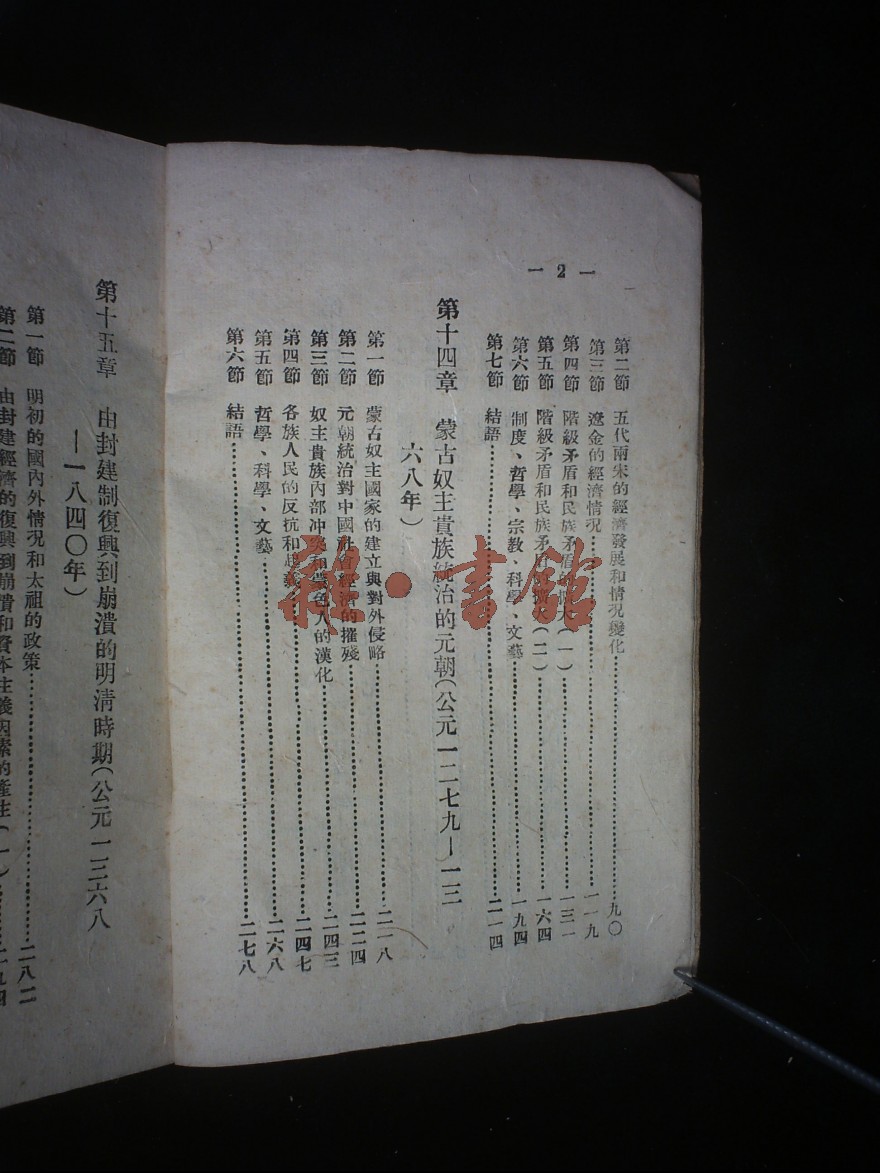 — 2 —
第二節 五代兩宋的經濟發展和情況變化……九〇
第三節 遼金的經濟情況……一一九
第四節 階級矛盾和民族矛盾的擴大(一)……一三一
第五節 階級矛盾和民族矛盾的擴大(二)……一六四
第六節 制度、哲學、宗教、科學、文藝……一九四
第七節 結語……二一四
第十四章 蒙古奴主貴族統治的元朝(公元一二七九—一三
六八年)
第一節 蒙古奴主國家的建立與對外侵略……二一八
第二節 元朝統治對中國社會經濟的摧殘……二二四
第三節 奴主貴族內部冲突和色人的漢化……二四三
第四節 各族人民的反抗和起義……二四七
第五節 哲學、科學、文藝……二六八
第六節 結語……二七八
第十五章 由封建制復興到崩潰的明清時期(公元一三六八
—一八四〇年)
第一節 明初的國內外情況和太祖的政策……二八二
第二節 由封建經濟的復興到崩潰和資本主義因素的產生(一)
雜·書館